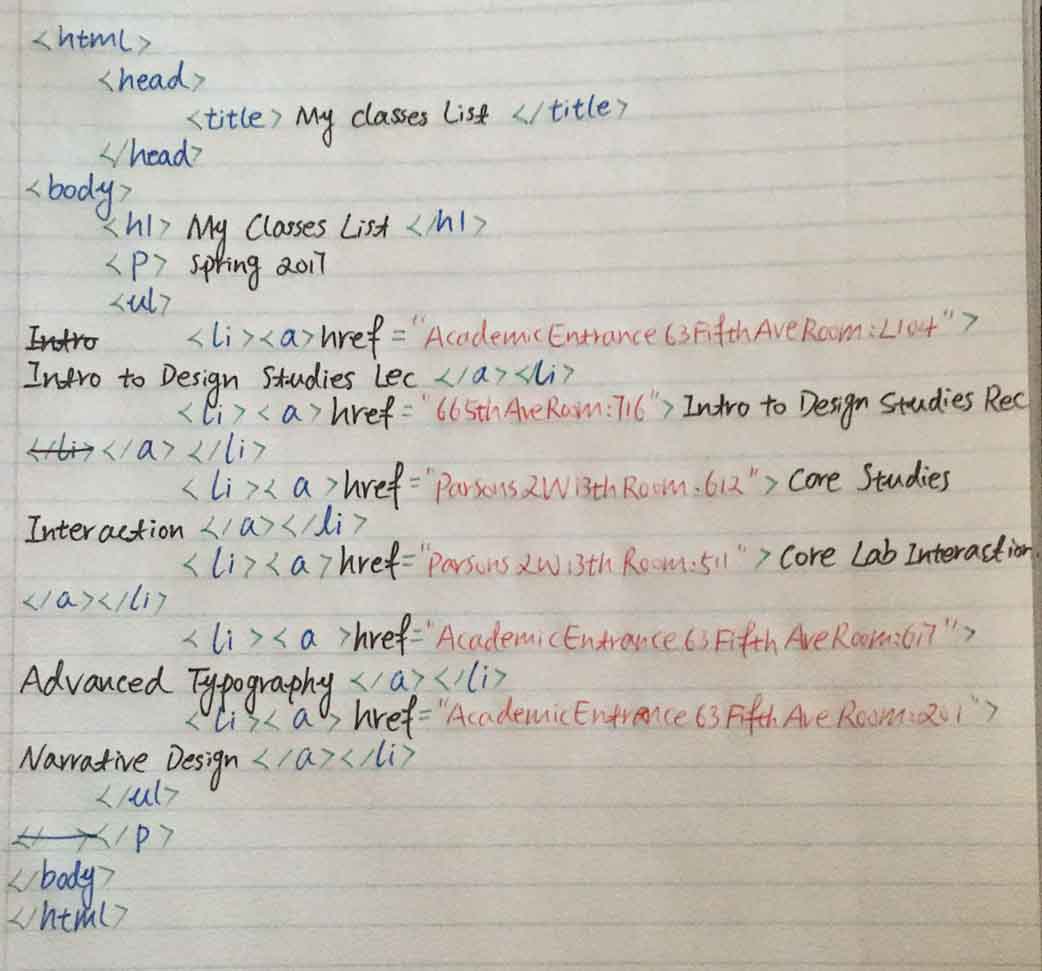 <html>
<head>
<title> My classes List </title>
</head>
<body>
<h1> My Classes List </h1>
<p> Spring 2017
<ul>
Intro <li><a>href="AcademicEntrance63FifthAveRoom:L104">
Intro to Design Studies Lec </a><li>
<li><a>href="665thAveRoom:716"> Intro to Design Studies Rec
</li></a></li>
<li><a>href="Parsons2W13thRoom:612"> Core Studies
Interaction </a></li>
<li><a>href="Parsons2W13thRoom:511"> Core Lab Interaction
</a></li>
<li><a>href="AcademicEntrance63FifthAveRoom:617">
Advanced Typography </a></li>
<li><a>href="AcademicEntrance63FifthAveRoom:201">
Narrative Design </a></li>
</ul>
</p>
</body>
</html>